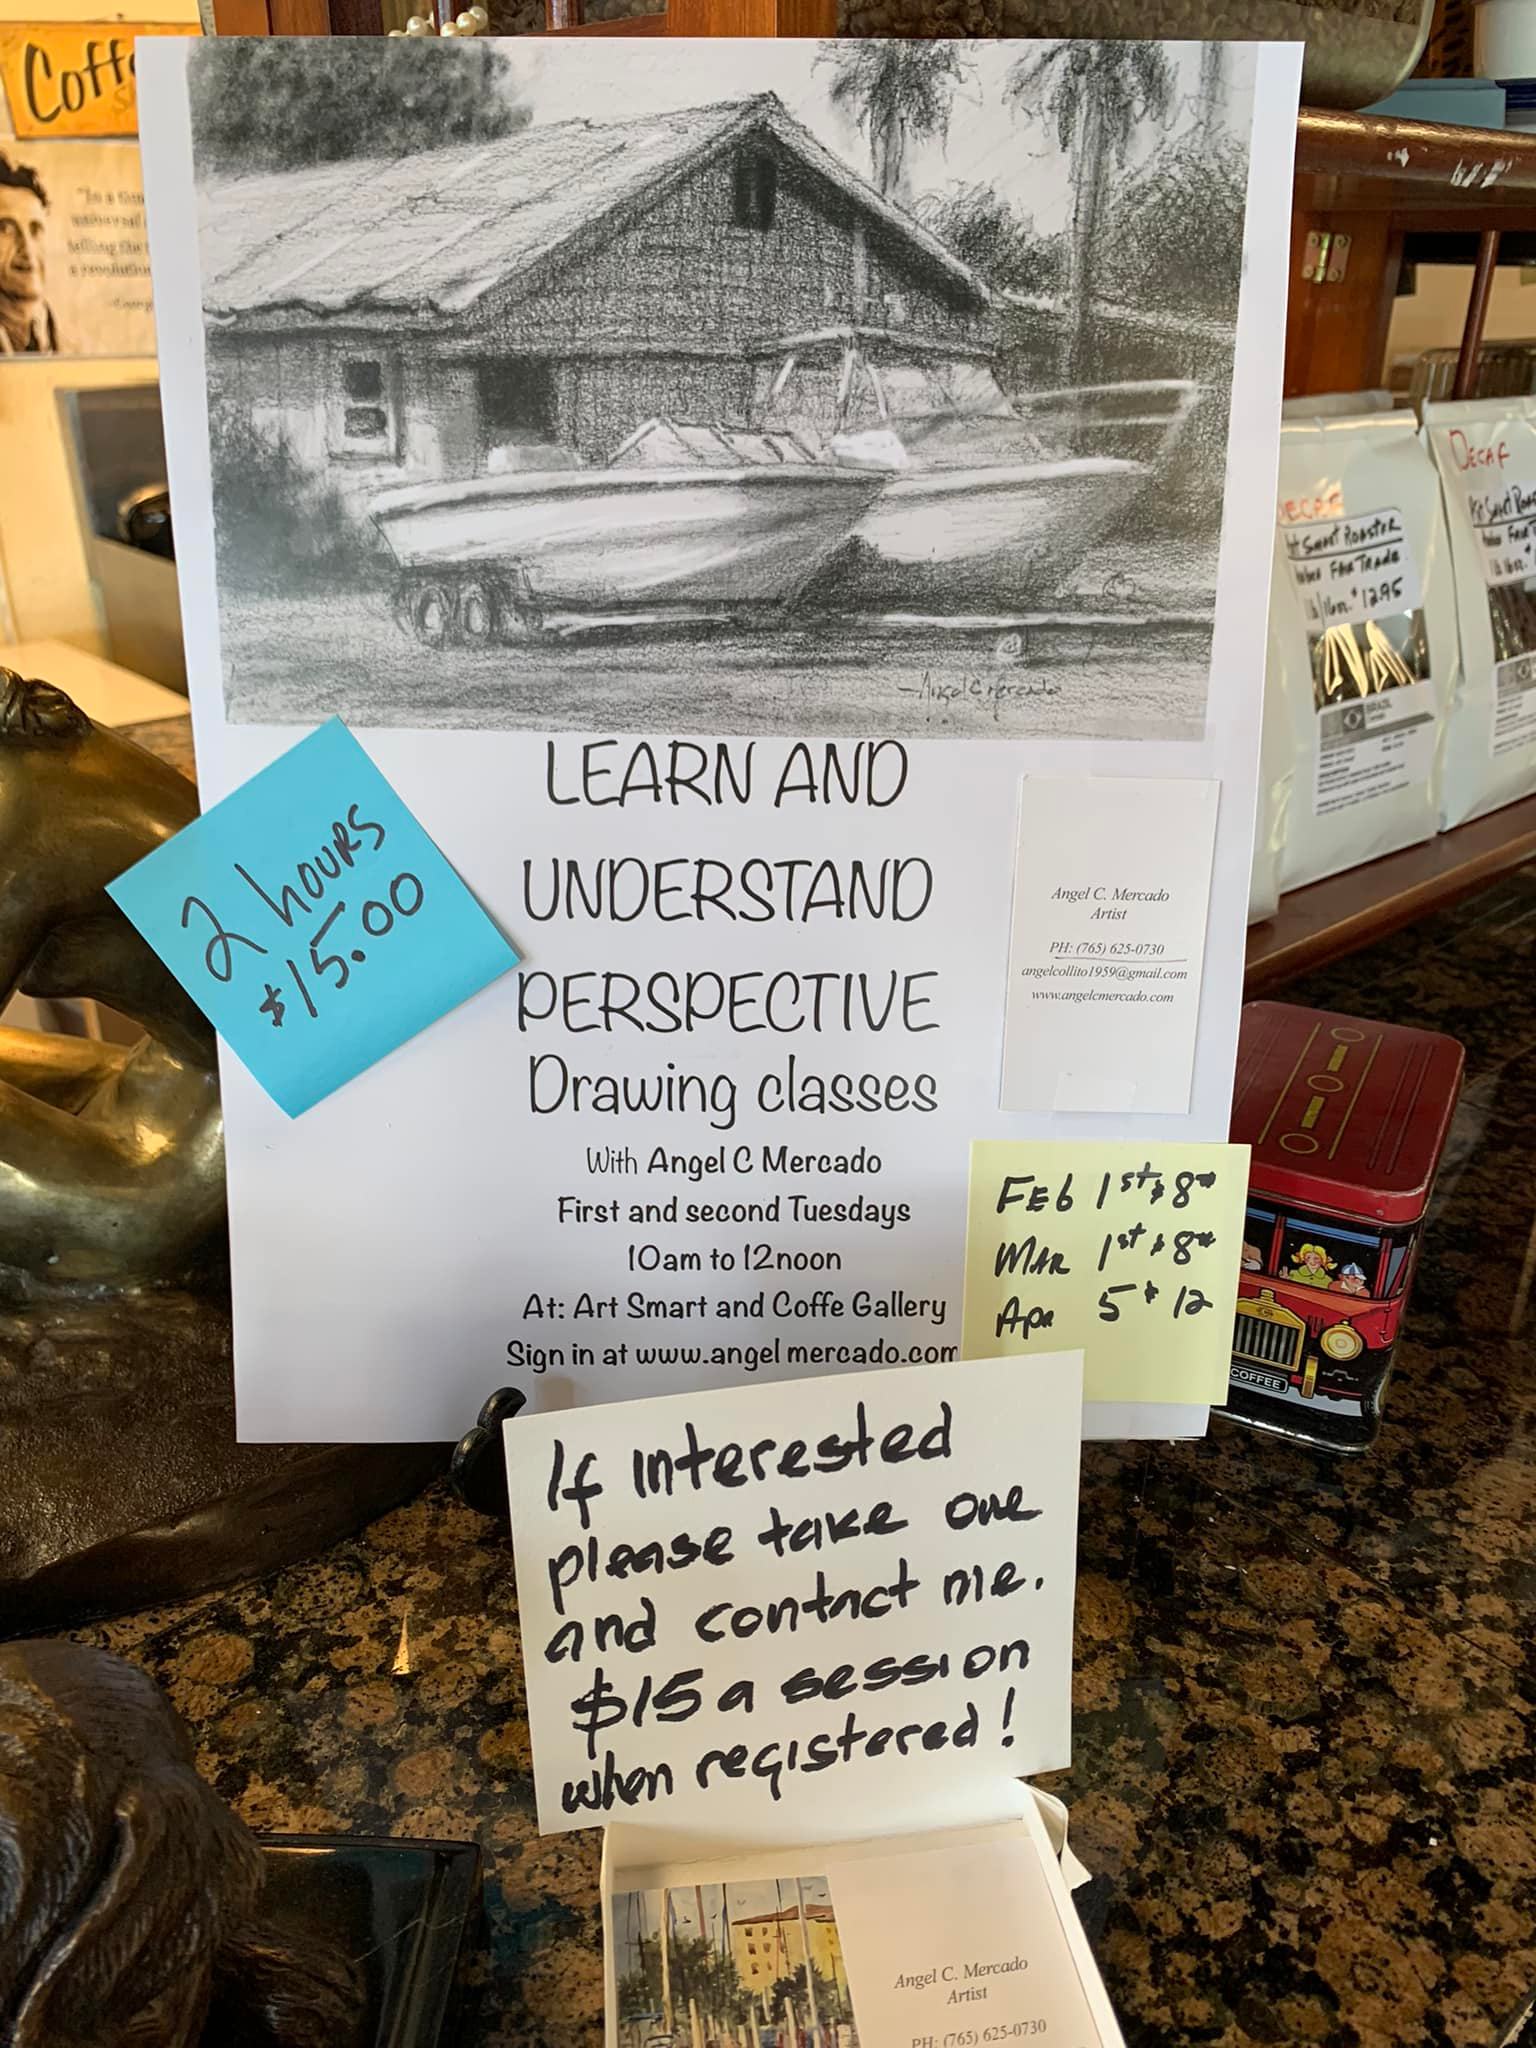 Coff
"In a time
universal
telling the t
a revolution
Angel C Mercado
LEARN AND
UNDERSTAND
PERSPECTIVE
Drawing classes
With Angel C Mercado
First and second Tuesdays
10am to 12noon
At: Art Smart and Coffe Gallery
Sign in at www.angel mercado.com
2 hours
$15.00
Angel C. Mercado
Artist
PH: (765) 625-0730
angelcollito1959@gmail.com
www.angelcmercado.com
FEb 1st & 8th
MAR 1st & 8th
Apr 5 & 12
If interested
please take one
and contact me.
$15 a session
when registered!
Angel C. Mercado
Artist
PH: (765) 625-0730
DECAF
Art Smart Roaster
Fair Trade
1lb/16oz. $12.95
BRAZIL
DECAF
Art Smart Roas
COFFEE